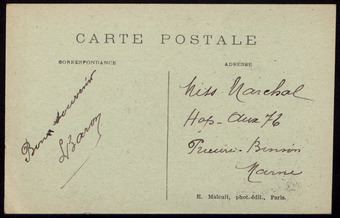 CARTE POSTALE
CORRESPONDANCE
ADRESSE
Bon Souvenir
LBaron
Miss Marchal
Hop- Aux 76
Prieuré- Binson
Marne
H. Malcuit, phot.-édit., Paris.